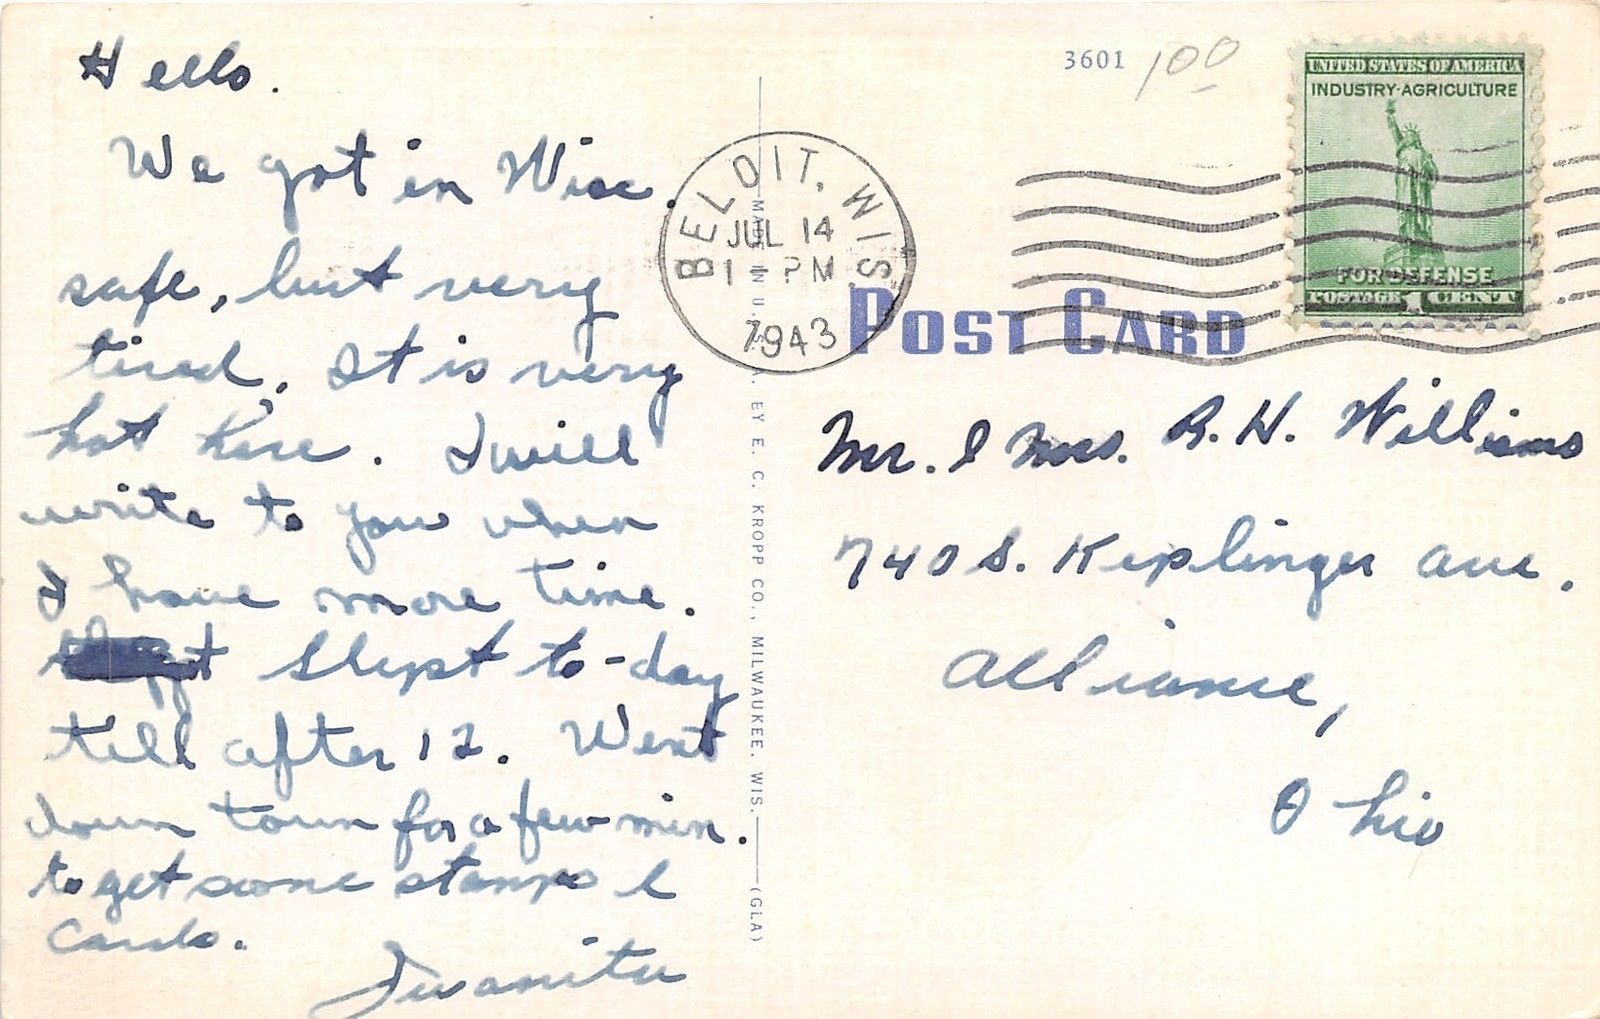 Hello.
We got in Wisc.
safe, but very
tired. It is very
hot here. I will
write to you when
I have more time.
Slept to-day
till after 12. Went
down town for a few min.
to get some stamps &
cards.
Juanita
3601
100
BELOIT, WIS.
JUL 14
1 PM
1943
UNITED STATES OF AMERICA
INDUSTRY-AGRICULTURE
FOR DEFENSE
POSTAGE 1 CENT
POST CARD
MADE IN U.S.A. BY E. C. KROPP CO., MILWAUKEE, WIS. (GLA)
Mr. & Mrs. R. H. Williams
740 S. Keplinger Ave.
Alliance,
Ohio